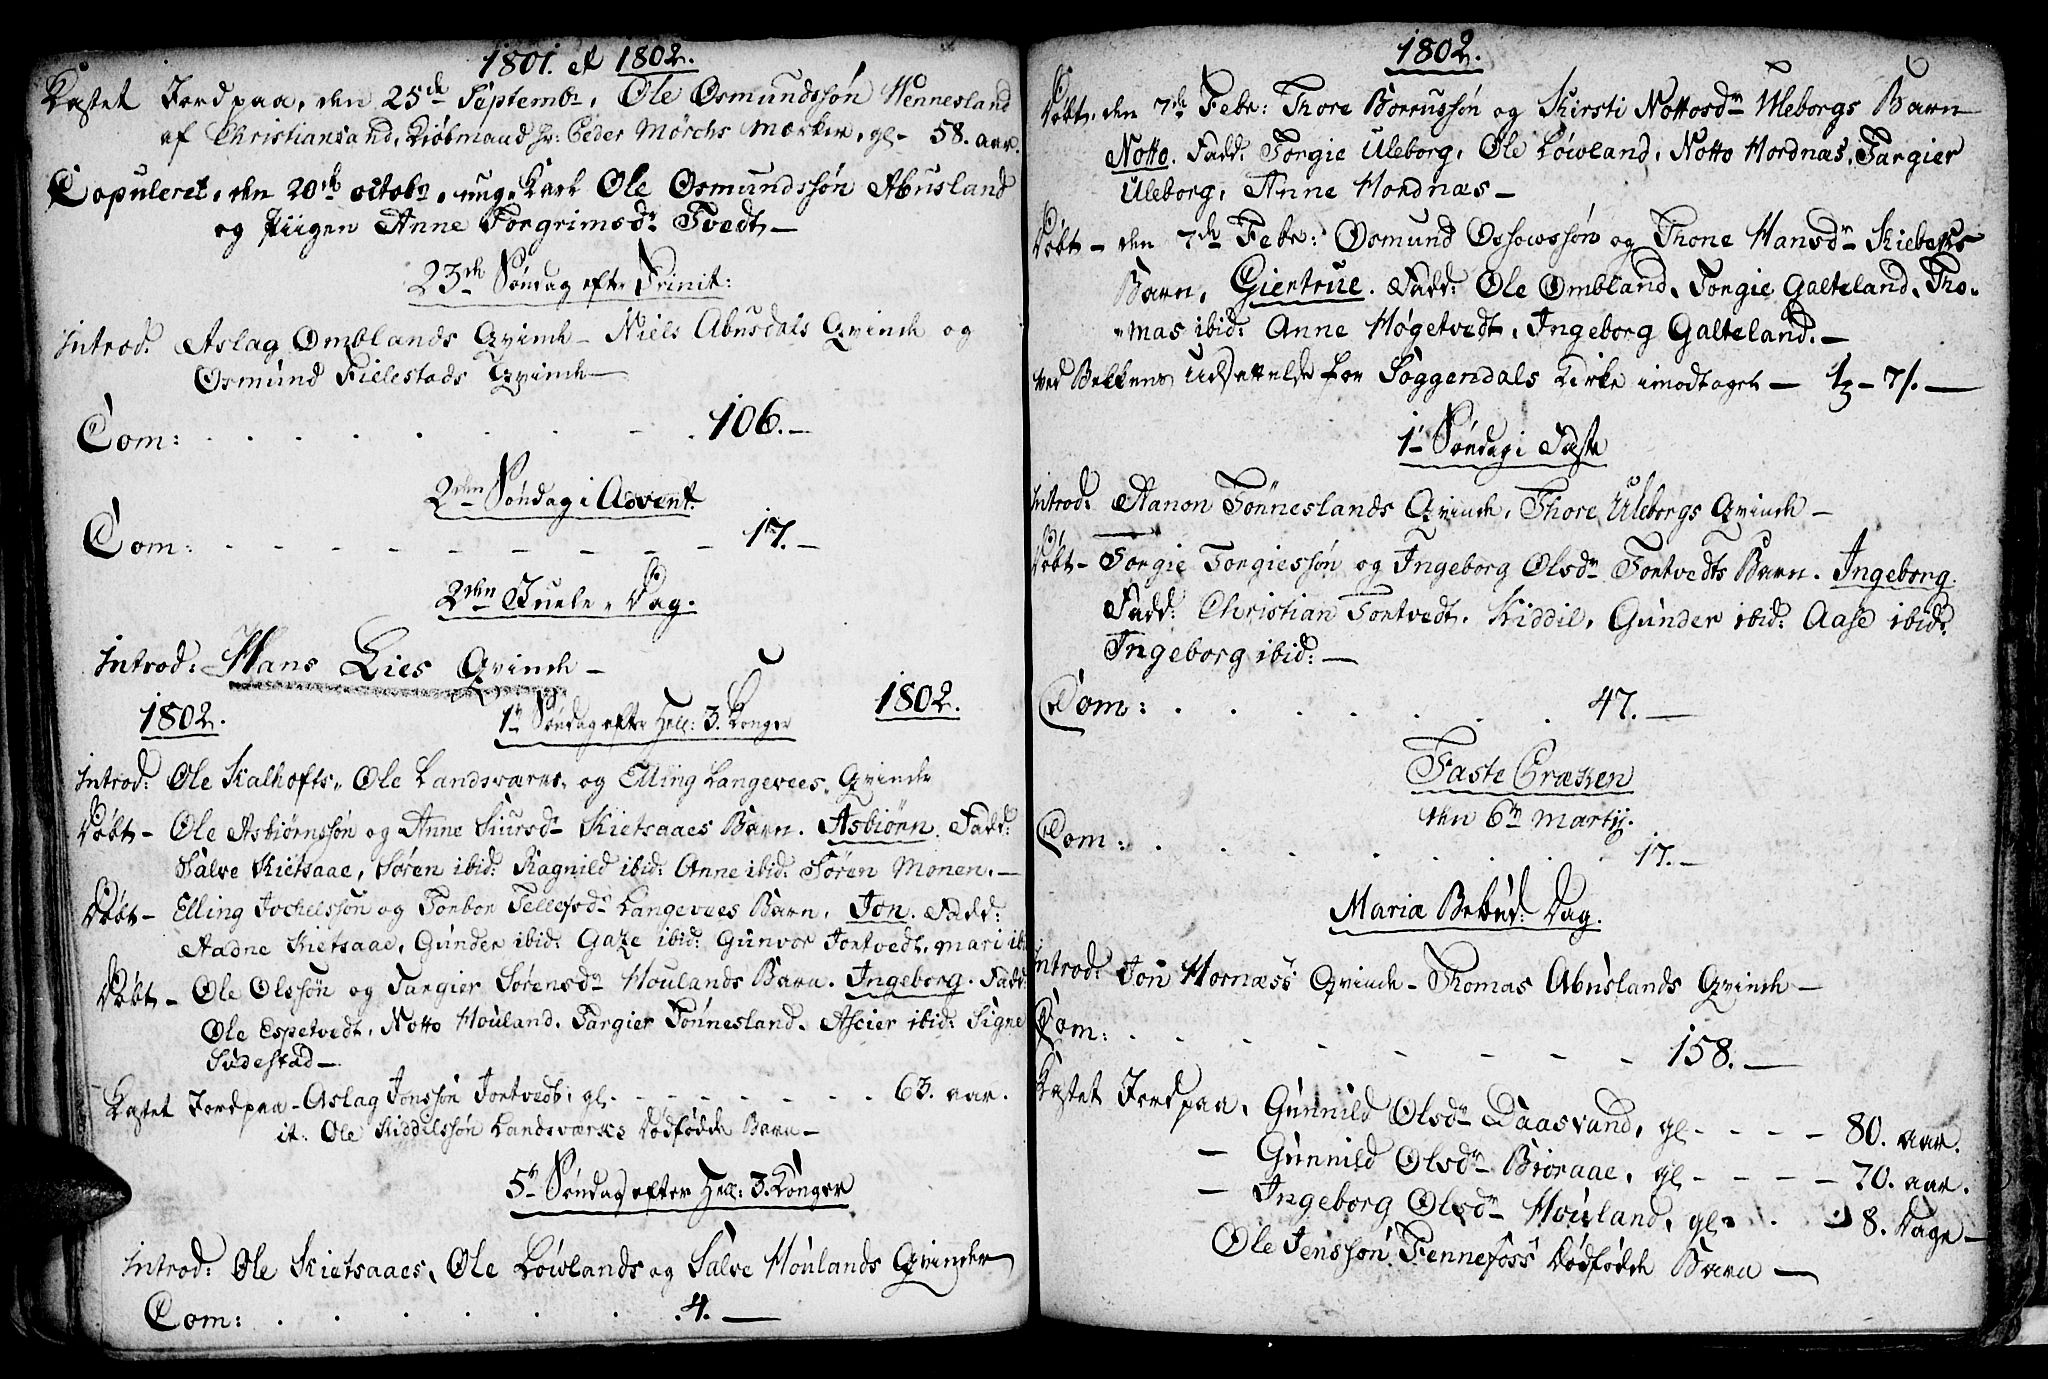 1801. et 1802.
Kastet Jord paa, den 25de Septembr, Ole Osmundssøn Wennesland
af Christiansand, Kiøbmand hr: Peder Mørchs Mærker, gl- 58. aar.
Copuleret, den 20de octobr, ung Karl Ole Osmundssøn Abusland
og Piigen Anne Torgrimsdr Tvedt-
23de Søndag efter Trinit:
Introd: Aslag Omblands Qvinde - Niels Abusdals Qvinde og
Osmund Fiellestads Qvinde-
Com: 106.-
2den Søndag i Advent.
Com: 17.-
2den Juele-Dag.
Introd: Hans Lies Qvinde-
1802. 1te Søndag efter Hell: 3. Konger 1802.
Introd: Ole Kalhofts, Ole Landsværks, og Elling Langevees, Qvinder
Døbt- Ole Asbiørnssøn og Anne Siursdr Kietsaaes Barn. Asbiørn. Fadd:
Salve Kietsaae, Søren ibid: Ragnild ibid: Anne ibid: Søren Monen.-
Døbt- Elling Jochelssøn og Torbor Tellefsdr Langevees Barn. Jon. Fadd:
Aadne Kietsaae, Gunder ibid: Gaze ibid: Gunvor Fortvedt, Mari ibi
Døbt- Ole Olssøn og Targier Sørensdr Houlands Barn. Ingeborg. Fadd:
Ole Espetvedt, Notto Houland. Targier Tønnesland. Ascier ibid: Signe
Sødestad-
Kastet Jord paa- Aslag Jonssøn Fortvedt, gl- 63. aar.
it: Ole Kiddilssøn Landsværks Dødfødde Barn-
5te Søndag efter Hell: 3. Konger
Introd: Ole Kietsaaes, Ole Løwlands og Salve Houlands Qvinder
Com: 4.-
1802.
Døbt, den 7de Febr: Thore Borrussøn og Kirsti Nottosdr Uleborgs Barn
Notto. Fadd: Torgie Uleborg, Ole Løwland, Notto Hordnæs, Targier
Uleborg, Anne Hordnæs-
Døbt- den 7de Febr: Osmund Ossowssøn og Thone Hansdr Kiebergs
Barn, Giertrue. Fadd: Ole Ombland, Torgie Galteland, Tho-
-mas ibid: Anne Høgetvedt, Ingeborg Galteland.-
ved Bekkens Udsættelse for Soggendals Kirke imodtaget-
1te Søndag i Faste
Introd: Aanon Tønneslands Qvinde, Thore Uleborgs Qvinde-
Døbt- Torgie Torgiessøn og Ingeborg Olsdr Fortvedts Barn. Ingeborg.
Fadd: Christian Fortvedt. Kiddil, Gunder ibid: Aase ibid:
Ingeborg ibid:-
Com: 47.-
Faste Præken
den 6te Martij.
Com: 17.-
Mariæ Bebud: Dag.
Introd: Jon Hornæss Qvinde- Thomas Abuslands Qvinde-
Com: 158.-
Kastet Jord paa, Gunnild Olsdr Daasvand, gl- 80. aar.
- Gunnild Olsdr Bioraae, gl- 70. aar.
- Ingeborg Olsdr Houland, gl- 8. Dage-
Ole Jenssøn Fennefoss Dødfødde Barn-